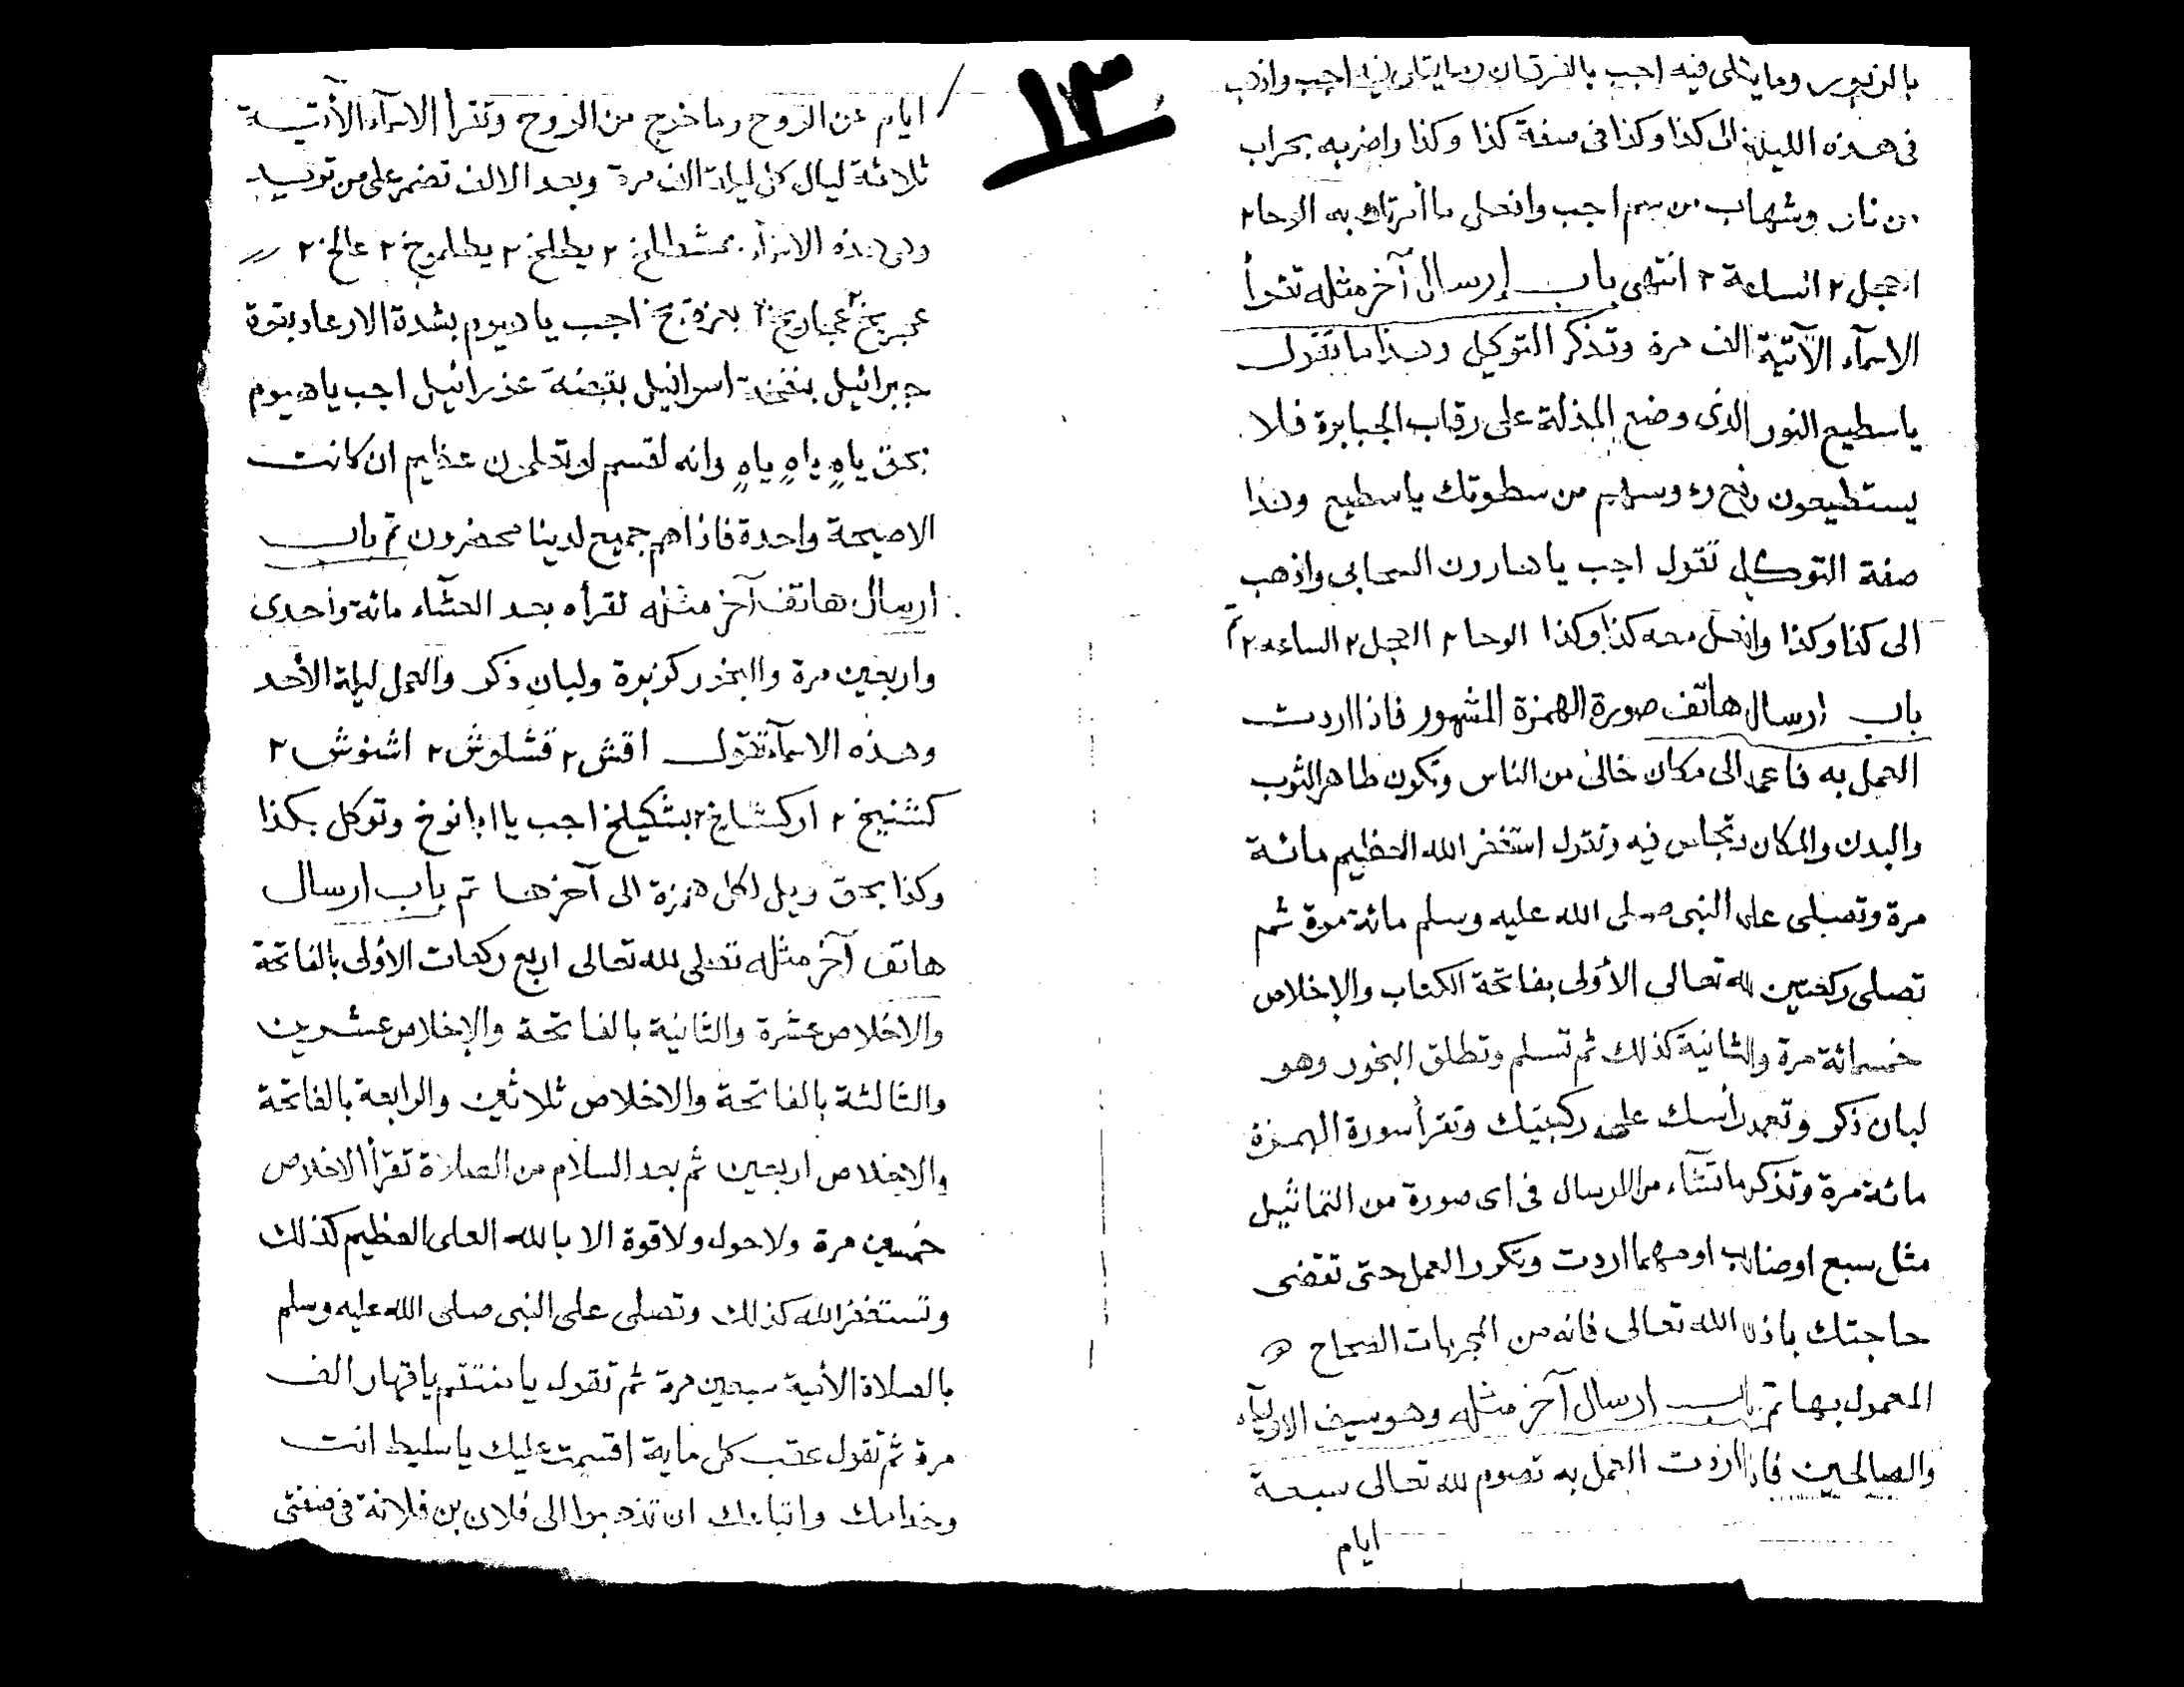 ١٣
بالزبور وما يتلى فيه اجب بالفرقان وما يتلى فيه اجب واذهب
فى هذه الليلة الى كذا وكذا فى صفة كذا وكذا واضربه بحراب
من نار وشهاب من سم اجب وافعل ما أمرتك به الوحا ٢
العجل ٢ الساعة ٢ انتهى باب إرسال آخر مثله تقرأ
الاسمآء الآتية الف مرة وتذكر التوكيل وهذا ما تقول
ياسطيع النور الذى وضع المذلة على رقاب الجبابرة فلا
يستطيعون رفع رءوسهم من سطوتك ياسطيع وهذا
صفة التوكل تقول اجب يا هارون السحابى واذهب
الى كذا وكذا وافعل معه كذا وكذا الوحا ٢ العجل ٢ الساعة ٢ تم
باب ارسال هاتف صورة الهمزة المشهور فاذا اردت
العمل به فاعمد الى مكان خالى من الناس وتكون طاهر الثوب
والبدن والمكان وتجلس فيه وتقول استغفر الله العظيم مائة
مرة وتصلى على النبى صلى الله عليه وسلم مائة مرة ثم
تصلى ركعتين لله تعالى الأولى بفاتحة الكتاب والإخلاص
خمسمائة مرة والثانية كذلك ثم تسلم وتطلق البخور وهو
لبان ذكر وتعمد رأسك على ركبتيك وتقرأ سورة الهمزة
مائة مرة وتذكر ما تشآء من الارسال فى اى صورة من التماثيل
مثل سبع اوضارب او مهما اردت وتكرر العمل حتى تقضى
حاجتك باذن الله تعالى فانه من المجربات الصحاح
المعمول بها تم باب ارسال آخر مثله وهو سيف الاوليآء
والصالحين فاذا اردت العمل به تصوم لله تعالى سبعة
ايام
ايام عن الروح وما خرج من الروح وتقرأ الاسمآء الأتية
ثلاثة ليال كل ليلة الف مرة وبعد الالف تضمر على من تريد
وهى هذه الاسمآء ٢ يطلخ ٢ يطلموخ ٢ عالخ ٢
اجب يا ديوم بشدة الارعاد بقوة
جبرائيل بنفخة اسرافيل بقبضة عذرائيل اجب ياهيوم
بحق ياهٍ ياهٍ ياهٍ وانه لقسم لو تعلمون عظيم ان كانت
الاصيحة واحدة فاذاهم جميع لدينا محضرون تم باب
ارسال هاتف آخر مثله تقرأه بعد العشآء مائة واحدى
واربعين مرة والبخور كزبرة ولبان ذكر والعمل ليلة الأحد
وهذه الاسمآء تقول اقش ٢ قشلوش ٢ اشنوش ٢
كشنيخ ٢ اركشايخ ٢ بشكيلخ اجب يا ابانوخ وتوكل بكذا
وكذا بحق ويل لكل همزة الى آخرها تم باب ارسال
هاتف آخر مثله تصلى لله تعالى اربع ركعات الأولى بالفاتحة
والاخلاص عشرة والثانية بالفاتحة والإخلاص عشرين
والثالثة بالفاتحة والاخلاص ثلاثين والرابعة بالفاتحة
والاخلاص اربعين ثم بعد السلام من الصلاة تقرأ الاخلاص
خمسين مرة ولا حول ولا قوة الا بالله العلى العظيم كذلك
وتستغفر الله كذلك وتصلى على النبى صلى الله عليه وسلم
بالصلاة الأتية سبعين مرة ثم تقول يا منتقم يا قهار الف
مرة ثم تقول عقب كل ماية اقسمت عليك يا سليط انت
وخدامك واتباعك ان تذهبوا الى فلان بن فلانة فى صفتى